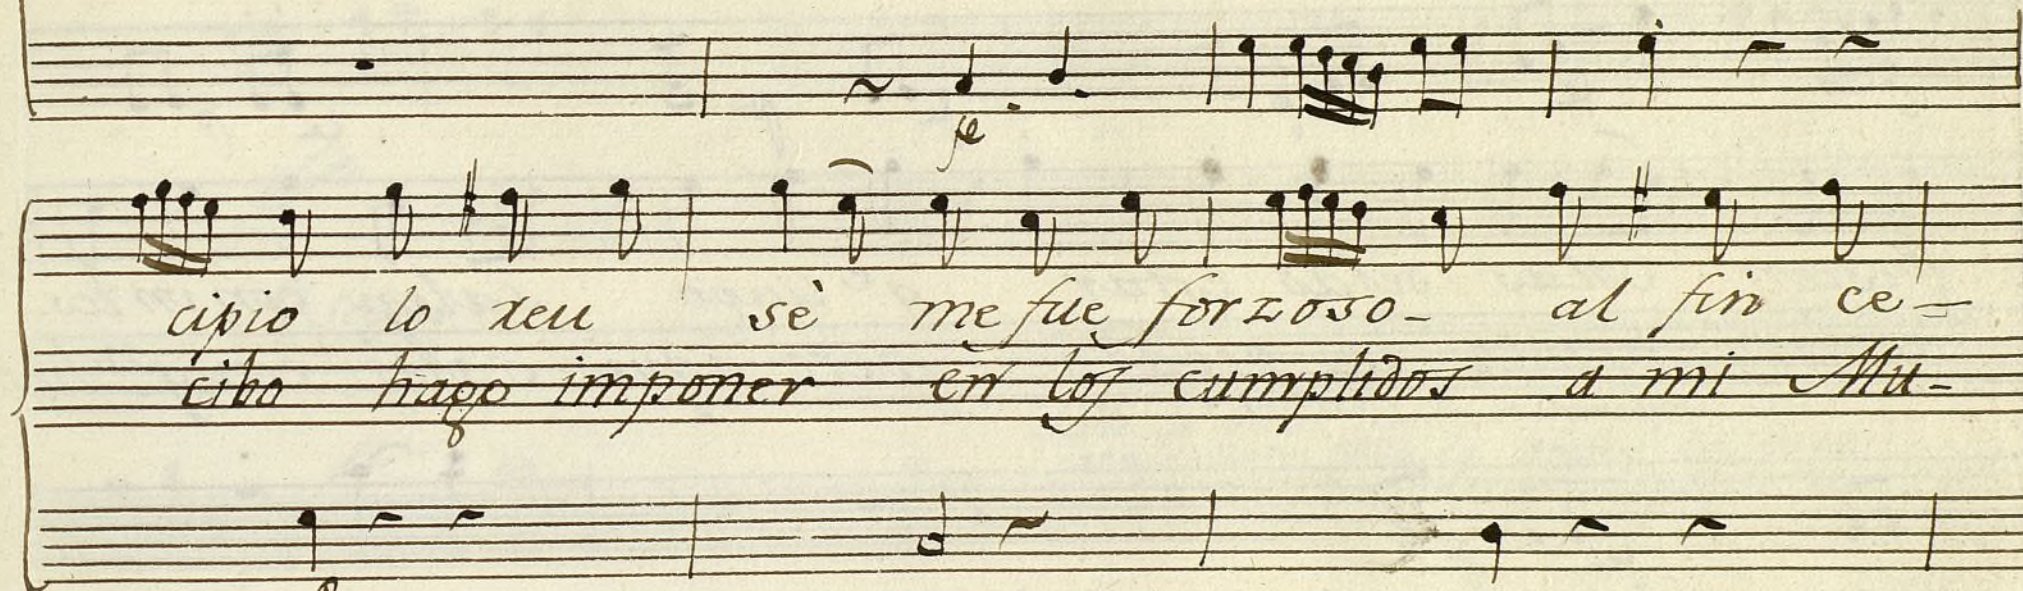 fe
cipio lo reu sè me fue forzoso - al fin ce -
cibo hago imponer en los cumplidos a mi Mu -